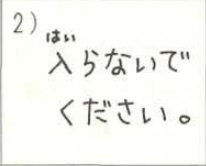 2)
はい
入らないで
ください。